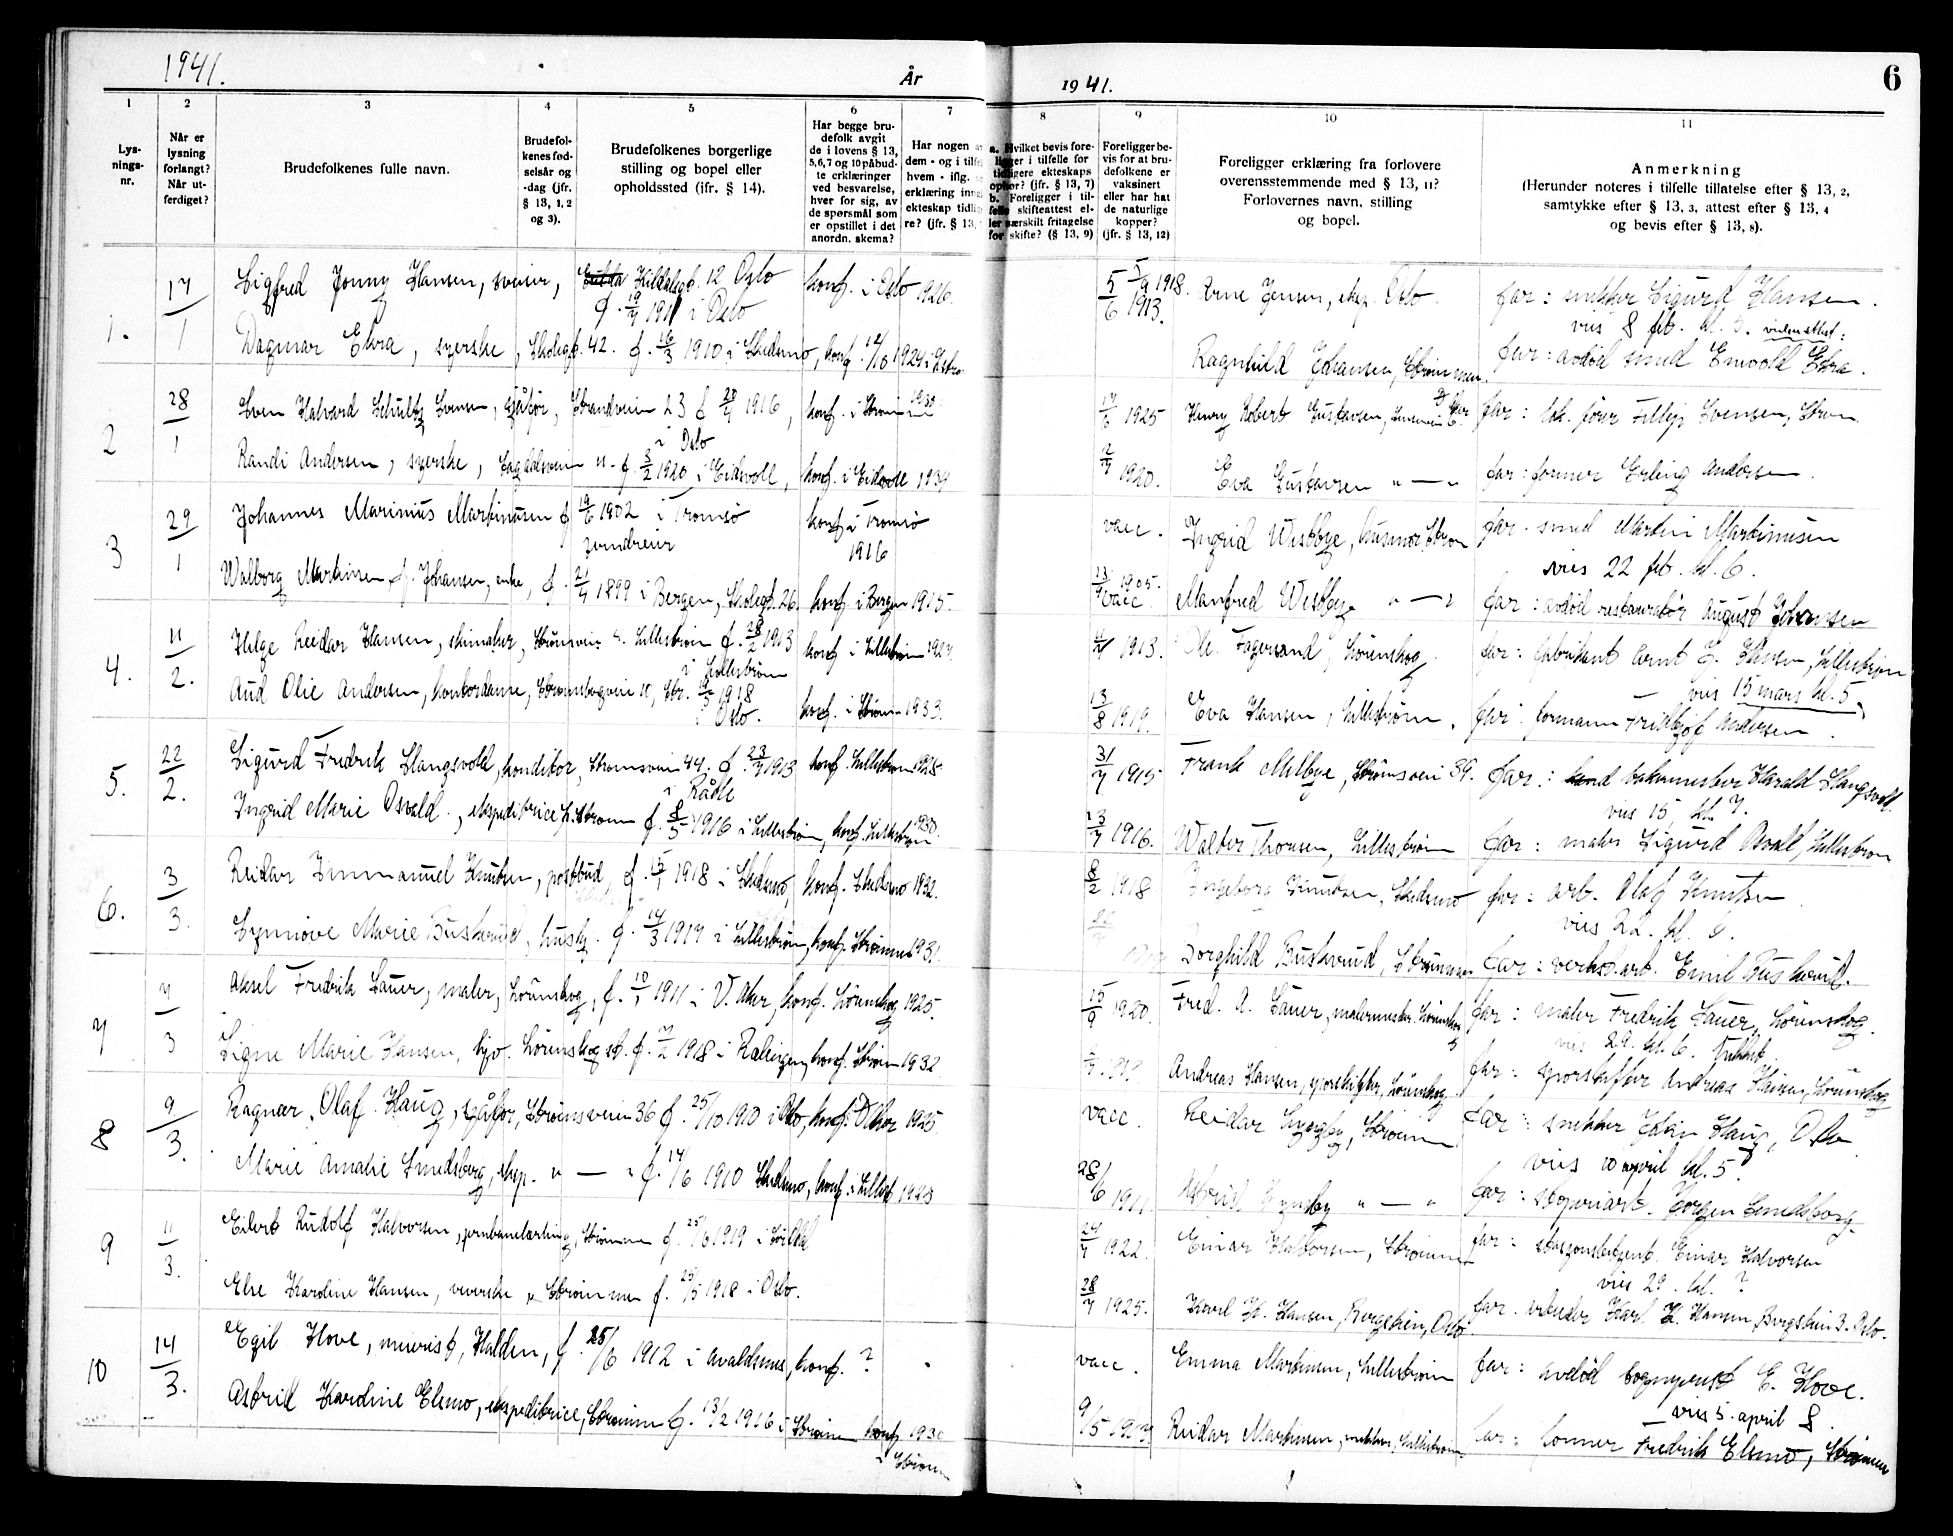 1941.
År
1941.
6
1
2
3
4
5
6
7
8
9
10
11
Lys-
nings-
nr.
Når er
lysning
forlangt?
Når ut-
ferdiget?
Brudefolkenes fulle navn.
Brudefol-
kenes fød-
selsår og
-dag (jfr.
§ 13, 1, 2
og 3).
Brudefolkenes borgerlige
stilling og bopel eller
opholdssted (ifr. § 14).
Har begge bru-
defolk avgit
de i lovens § 13,
5,6,7 og 10 påbud-
te erklæringer
ved besvarelse,
hver for sig, av
de spørsmål som
er opstillet i det
anordn. skema?
Har nogen
dem - og i
hvem - iflg.
erklæring
ekteskap
re? (jfr. § 13,
a. Hvilket bevis fore-
ligger i tilfelle for
tidligere ekteskaps
ophør? (jfr. § 13, 7)
b. Foreligger i til-
felle skifteattest el-
ler særskilt fritagelse
for skifte? (§ 13, 9)
Foreligger be-
vis for at bru-
defolkene er
vaksinert
eller har hat
de naturlige
kopper?
(jfr. § 13, 12)
Foreligger erklæring fra forlovere
overensstemmende med § 13, 11?
Forlovernes navn, stilling
og bopel.
Anmerkning
(Herunder noteres i tilfelle tillatelse efter § 13, 2,
samtykke efter § 13, 3, attest efter § 13, 4
og bevis efter § 13, 8).
1. 17/1 Sigfred Jonny Hansen, sveiser, 12 Oslo konf. i Oslo 1926. 5/9 1918. Arne Jensen, eksp. Oslo. far: snekker Sigurd Hansen.
f. 1911 i Oslo 5/6 1913. vies 8 feb. kl. 5.
Dagmar Ekra, syerske, Skolegt. 42. f. 16/3 1910 i Skedsmo, konf. 12/10 1924 Ragnhild Johansen, Strømmen. far: avdød smed Enevold Ekra.
2 28/1 Sven Halvard Schultz Svensen, sjåfør, Strandveien 23 f 1916, konf. i Strømmen 1930 17/6 1925 Henry Robert Gustavsen, far: Svensen, Strøm.
i Oslo
Randi Andersen, syerske, 11. f. 3/2 1920 i Eidsvoll, konf. i Eidsvoll 1934 2/7 1920. Eva Gustavsen " — " far: former Erling Andersen.
3 29/1 Johannes Marinius Martinusen f 19/6 1902 i Tromsø konf. i Tromsø vacc. Ingrid Westbye, husmor, Strøm far: smed Martin Martinusen
1916 vies 22 feb. kl. 6.
Walborg Martinsen, f. Johansen, enke, f. 21/7 1899 i Bergen, Skolegt. 26. konf. i Bergen 1915. 1905. vacc. Manfred Westbye " — " far: avdød restauratør August Johansen
4. 11/2. Helge Reidar Hansen, skimaker, Lillestrøm f. 28/2 1913 konf. i Lillestrøm 1913. Ole Fagersand, Lørenskog. far: fabrikant Arnt J. Hansen, Lillestrøm
i Lillestrøm vies 15 mars kl. 5
Aud Olie Andersen, kontordame, Strømsbogveien 10, Str. 1918 konf. i Strømm 1933. 13/8 1919. Eva Hansen, Lillestrøm. far: formann Fridtjof Andersen.
i Oslo.
5. 22/2. Sigurd Fredrik Slangsvold, konditor, Strømsveien 44. f. 23/7 1913 konf. Lillestrøm 1928 31/7 1915 Frank Melbye, Strømsveien 39. far: bakermester Harald Slangsvold.
i Råde vies 15, kl. 7.
Ingrid Marie Osvald, ekspeditrice, Strømm f. 8/5 1916 i Lillestrøm, konf. Lillestrøm 1930. 23/7 1916. Walter Thoresen, Lillestrøm far: maler Sigurd Osvald, Lillestrøm
6. 3/3. Reidar Immanuel Knutsen, postbud, f. 15/1 1918 i Skedsmo, konf. Skedsmo 1932. 8/2 1918 Ingeborg Knutsen, Skedsmo far: arb. Olaf Knutsen
vies 22. kl. 6.
Synnøve Marie Buskerud, hush. f. 14/3 1917 i Lillestrøm, konf. Strømmen 1931. Borghild Buskerud, Strømmen far: verksarb. Emil Buskerud.
7 7/3 Aksel Fredrik Sauer, maler, Lørenskog, f. 10/1 1911 i V. Aker, konf. Lørenskog 1925. 15/9 1920. Fred. A. Sauer, malermester, Lørenskog far: maler Fredrik Sauer, Lørenskog.
vies 29. kl. 6.
Signe Marie Hansen, Lørenskog st. f. 1918 i Rælingen, konf. Strømm 1932 Andreas Hansen, sporskifter, Lørenskog far: sporskifter Andreas Hansen, Lørenskog
8 9/3. Ragnar Olaf Haug, sjåfør, Strømsveien 36 f. 25/10 1910 i Oslo, konf. V. Aker 1925 vacc. Reidar Lyngby, Strømm far: snekker Johan Haug, Oslo
vies 10 april kl. 5
Marie Amalie Smedsborg, eksp. " — " f. 14/6 1910 Skedsmo, konf. i Lillest. 1925 28/6 1911 Astrid Lyngby " — " far: støperiarb. Jørgen Smedsborg.
9 11/3. Eilert Rudolf Halvorsen, jernbanelærling, Strømmen f. 25/6 1919 i 24/7 1922. Einar Halvorsen, Strømmen far: stasjonsbetjent Einar Halvorsen
vies 29. kl. ?
Else Karoline Hansen, veverske, Strømmen f. 25/5 1918 i Oslo. 28/7 1925. Karl H. Hansen, Bergslien, Oslo. far: arbeider Karl H. Hansen, Bergslien 3. Oslo.
10 14/3. Egil Hove, meierist, Halden, f. 25/6 1912 i Avaldsnes, konf. ? vacc. Emma Martinsen, Lillestrøm far: avdød sogneprest E. Hove.
vies 5. april 8.
Astrid Karoline Elsmo, ekspeditrice, Strømm f. 13/2 1916 i Strømm konf. 1930 9/5 Reidar Martinsen, snekker, Lillestrøm. far: former Fredrik Elsmo, Strømmen
i Strømm